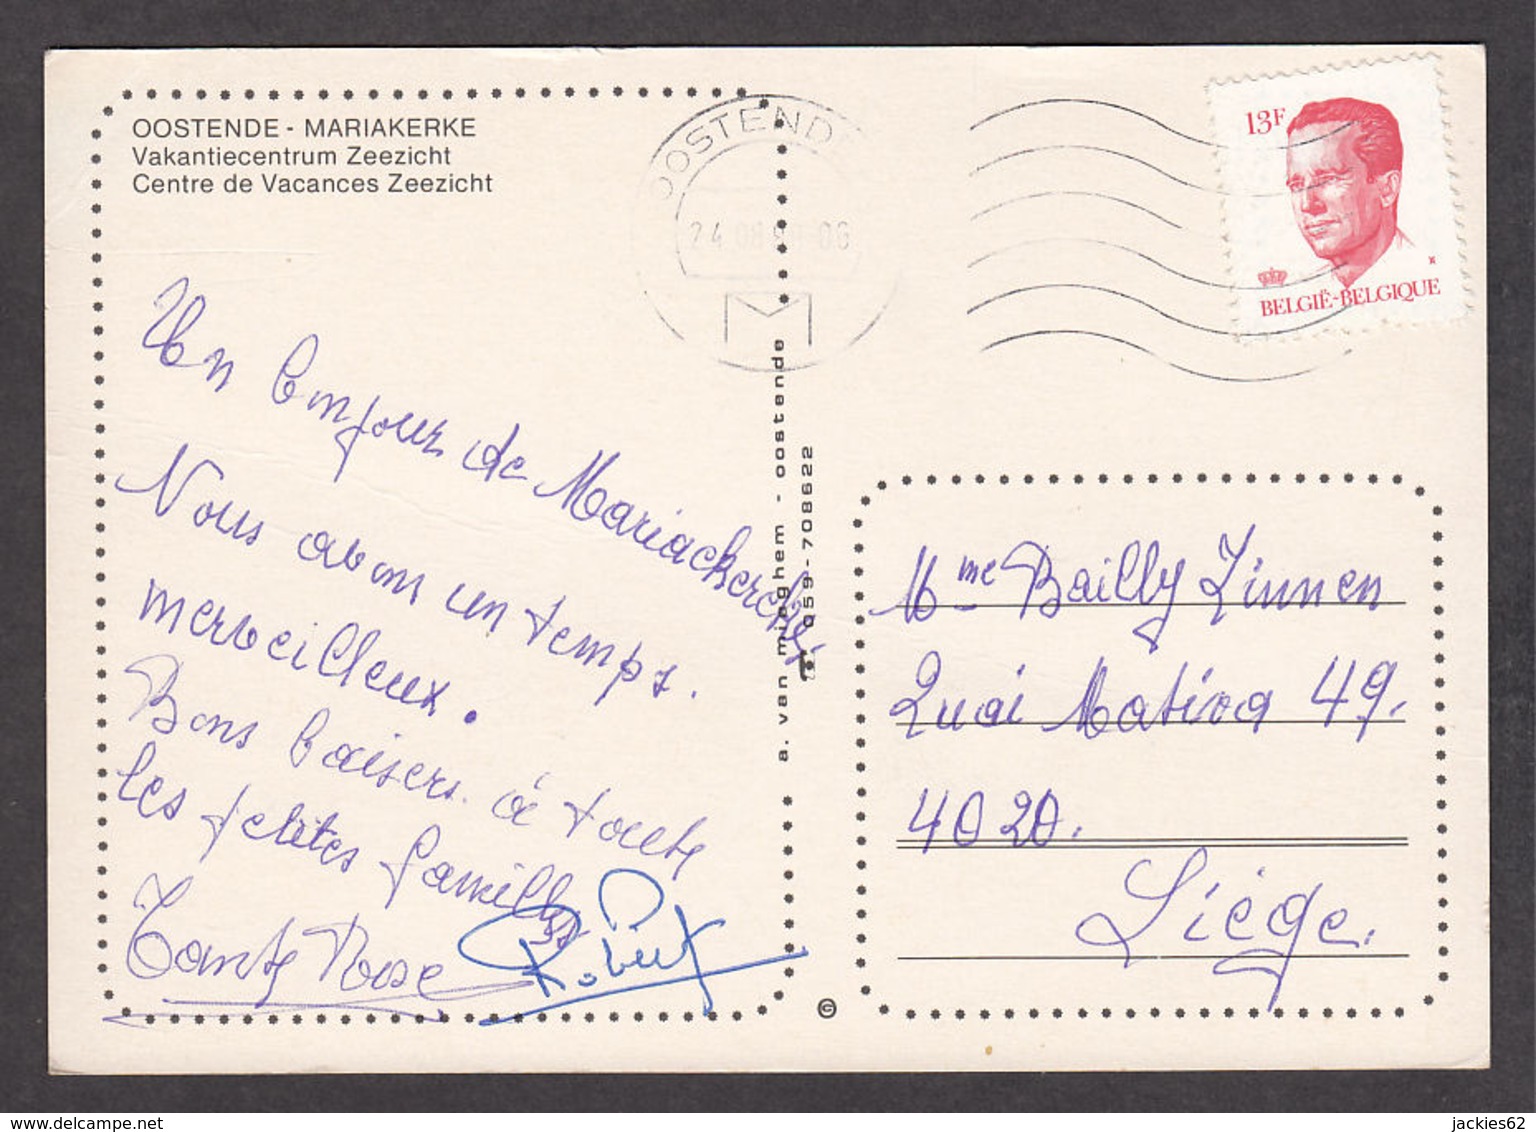 OOSTENDE - MARIAKERKE
Vakantiecentrum Zeezicht
Centre de Vacances Zeezicht
OOSTENDE
24 08 06
13F
BELGIË-BELGIQUE
Un bonjour de Mariackercke.
Nous avons un temps.
merveilleux.
Bons baisers à toute
les petites familles
Tante Rose
Robert
a. van mieghem - oostende
059-708622
©
Mme Bailly Linnen
Quai Mativa 49.
4020.
Liége.
jackies62